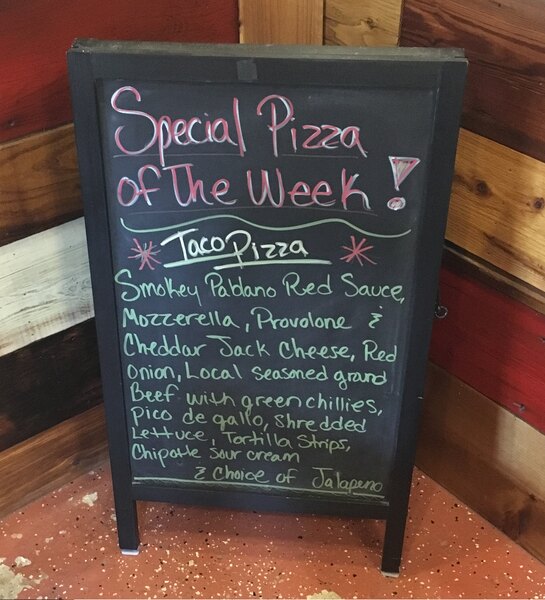 Special Pizza
of The Week!
Taco Pizza
Smokey Pablano Red Sauce,
Mozzerella, Provolone &
Cheddar Jack Cheese, Red
onion, Local seasoned grand
Beef with green chillies,
Pico de gallo, shredded
Lettuce, Tortilla Strips,
Chipotle sour cream
& Choice of Jalapeno